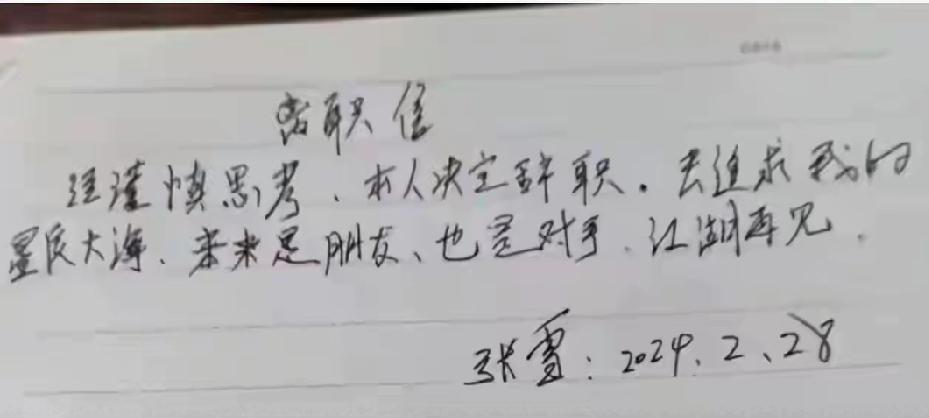 离职信
经谨慎思考、本人决定辞职。去追求我的
星辰大海、未来是朋友、也是对手、江湖再见。
张雪：2024.2、28